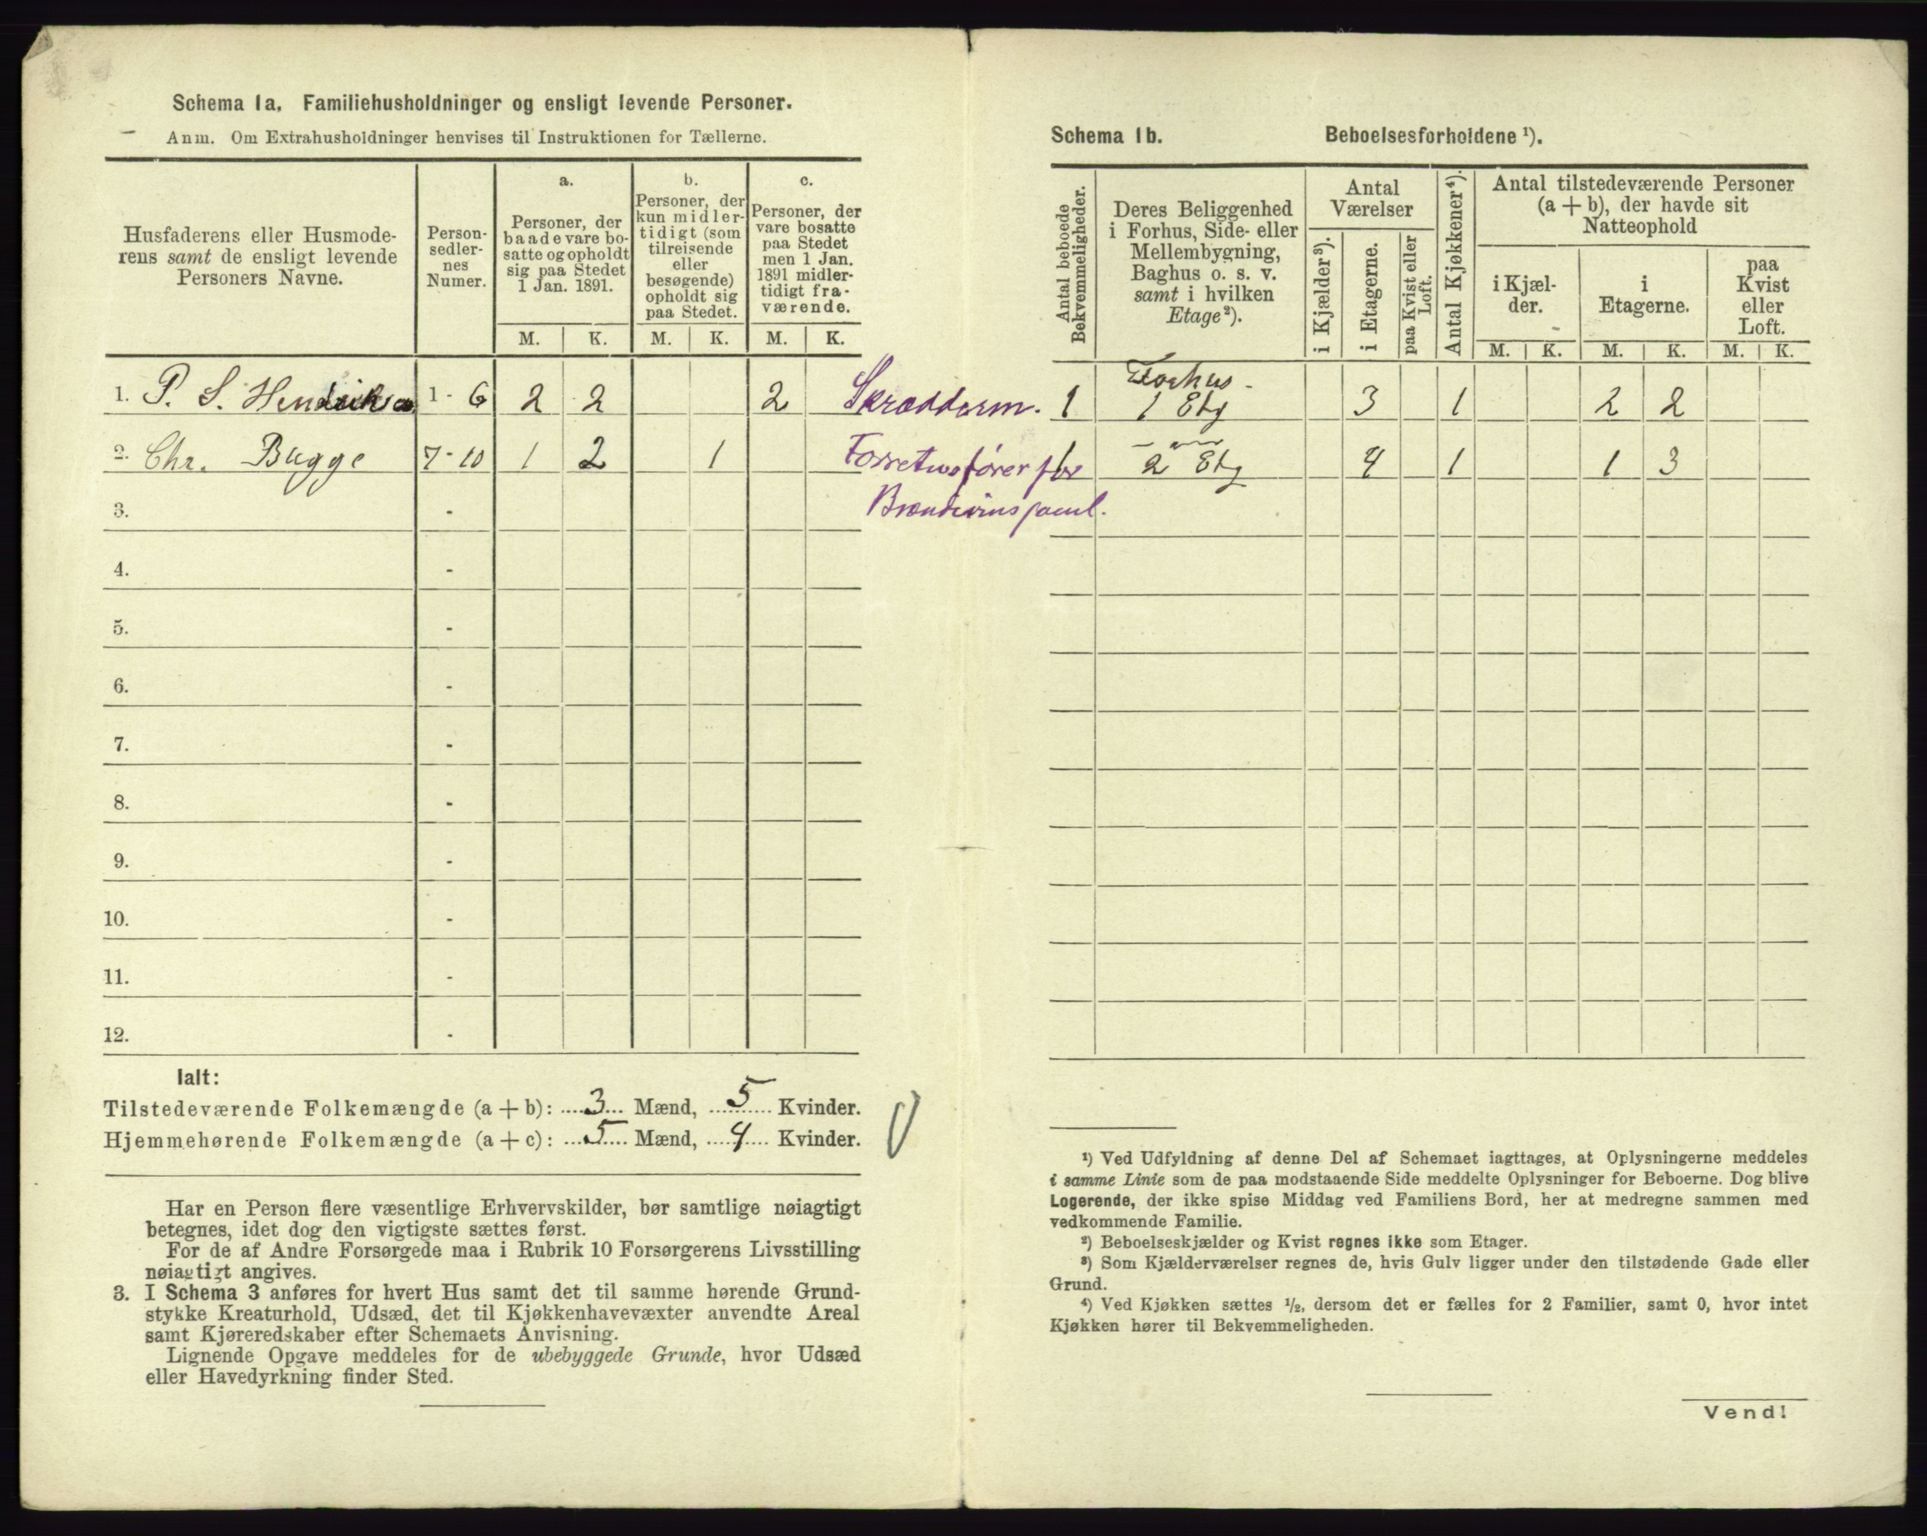 Schema 1a. Familiehusholdninger og ensligt levende Personer.
Anm. Om Extrahusholdninger henvises til Instruktionen for Tællerne.
Husfaderens eller Husmode-
rens samt de ensligt levende
Personers Navne.
Person-
sedler-
nes
Numer.
a.
Personer, der
baade vare bo-
satte og opholdt
sig paa Stedet
1 Jan. 1891.
b.
Personer, der
kun midler-
tidigt (som
tilreisende
eller
besøgende)
opholdt sig
paa Stedet.
c.
Personer, der
vare bosatte
paa Stedet
men 1 Jan.
1891 midler-
tidigt fra-
værende.
M. K. M. K. M. K.
1. P. S. Hendriksen 1 - 6 2 2 2 Skrædderm.
2. Chr. Bugge 7 - 10 1 2 1 Forretnsfører for
3. - Brændevinssaml.
4. -
5. -
6. -
7. -
8. -
9. -
10. -
11. -
12. -
Ialt:
Tilstedeværende Folkemængde (a + b): 3 Mænd, 5 Kvinder.
Hjemmehørende Folkemængde (a + c): 5 Mænd, 4 Kvinder.
Har en Person flere væsentlige Erhvervskilder, bør samtlige nøiagtigt
betegnes, idet dog den vigtigste sættes først.
For de af Andre Forsørgede maa i Rubrik 10 Forsørgerens Livsstilling
nøiagtigt angives.
3. I Schema 3 anføres for hvert Hus samt det til samme hørende Grund-
stykke Kreaturhold, Udsæd, det til Kjøkkenhavevæxter anvendte Areal
samt Kjøreredskaber efter Schemaets Anvisning.
Lignende Opgave meddeles for de ubebyggede Grunde, hvor Udsæd
eller Havedyrkning finder Sted.
Schema 1b. Beboelsesforholdene ¹).
Antal beboede
Bekvemmeligheder.
Deres Beliggenhed
i Forhus, Side- eller
Mellembygning,
Baghus o. s. v.
samt i hvilken
Etage²).
Antal
Værelser
i Kjælder³).
i Etagerne.
paa Kvist eller
Loft.
Antal Kjøkkener⁴).
Antal tilstedeværende Personer
(a + b), der havde sit
Natteophold
i Kjæl-
der.
i
Etagerne.
paa
Kvist
eller
Loft.
M. K. M. K. M. K.
Forhus -
1 1 Etg 3 1 2 2
1 2 Etg 4 1 1 3
¹) Ved Udfyldning af denne Del af Schemaet iagttages, at Oplysningerne meddeles
i samme Linie som de paa modstaaende Side meddelte Oplysninger for Beboerne. Dog blive
Logerende, der ikke spise Middag ved Familiens Bord, her at medregne sammen med
vedkommende Familie.
²) Beboelseskjælder og Kvist regnes ikke som Etager.
³) Som Kjælderværelser regnes de, hvis Gulv ligger under den tilstødende Gade eller
Grund.
⁴) Ved Kjøkken sættes ½, dersom det er fælles for 2 Familier, samt 0, hvor intet
Kjøkken hører til Bekvemmeligheden.
Vend!